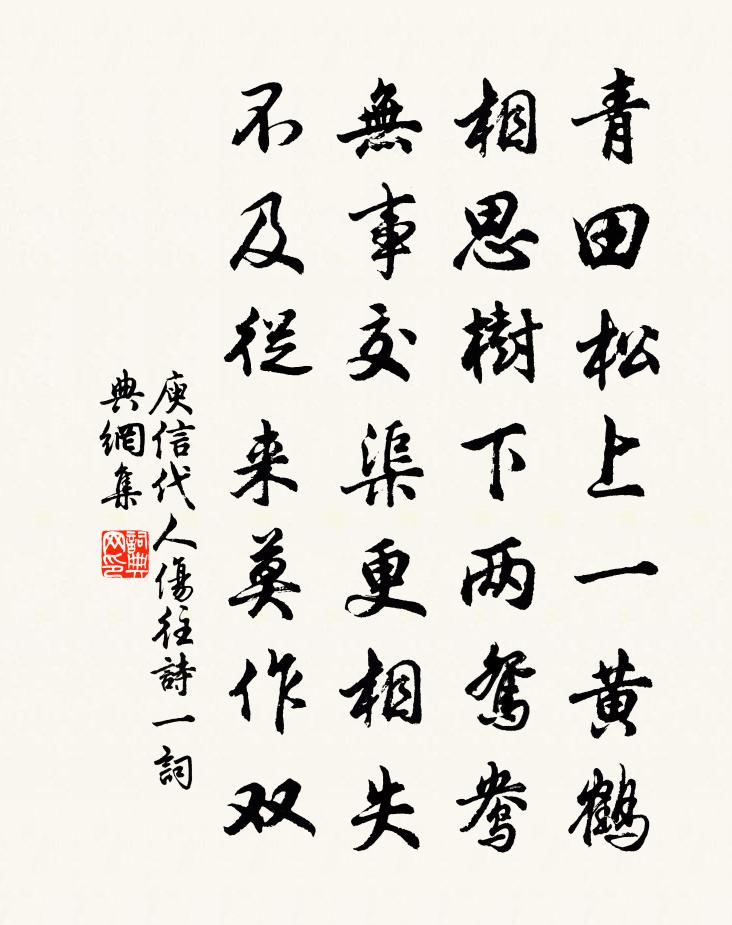 青田松上一黄鶴
相思樹下两鴛鴦
無事交渠更相失
不及從来莫作双
庾信代人傷往詩一詞
典網集
詞典网印